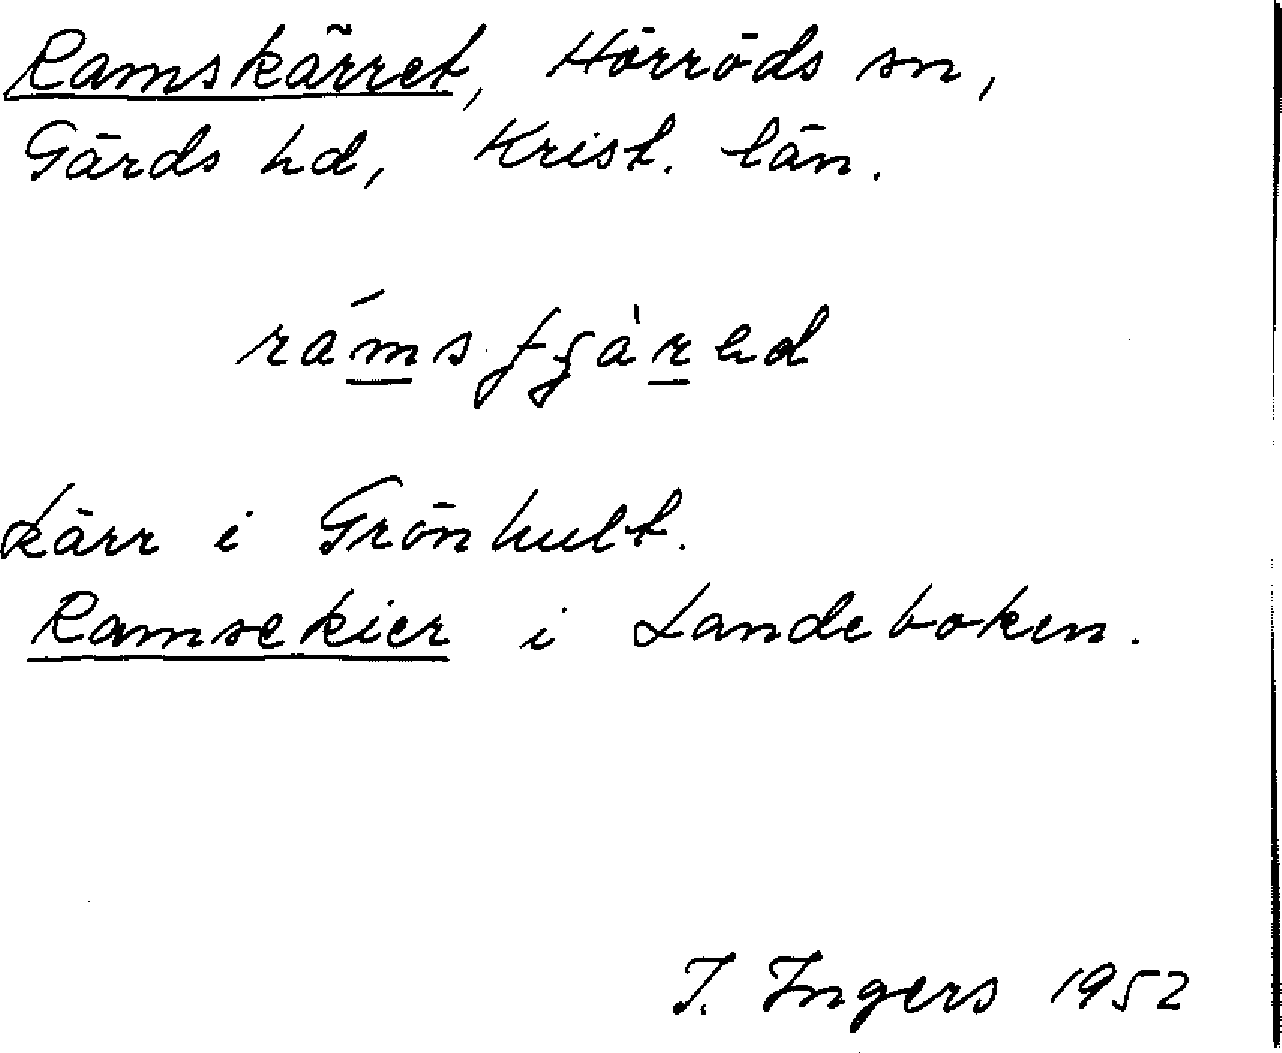 Ramskärret, Hörröds sn,
Gärds hd, Krist. län.
kärr i Grönhult.
Ramsekier i Landeboken.
I. Ingers 1952